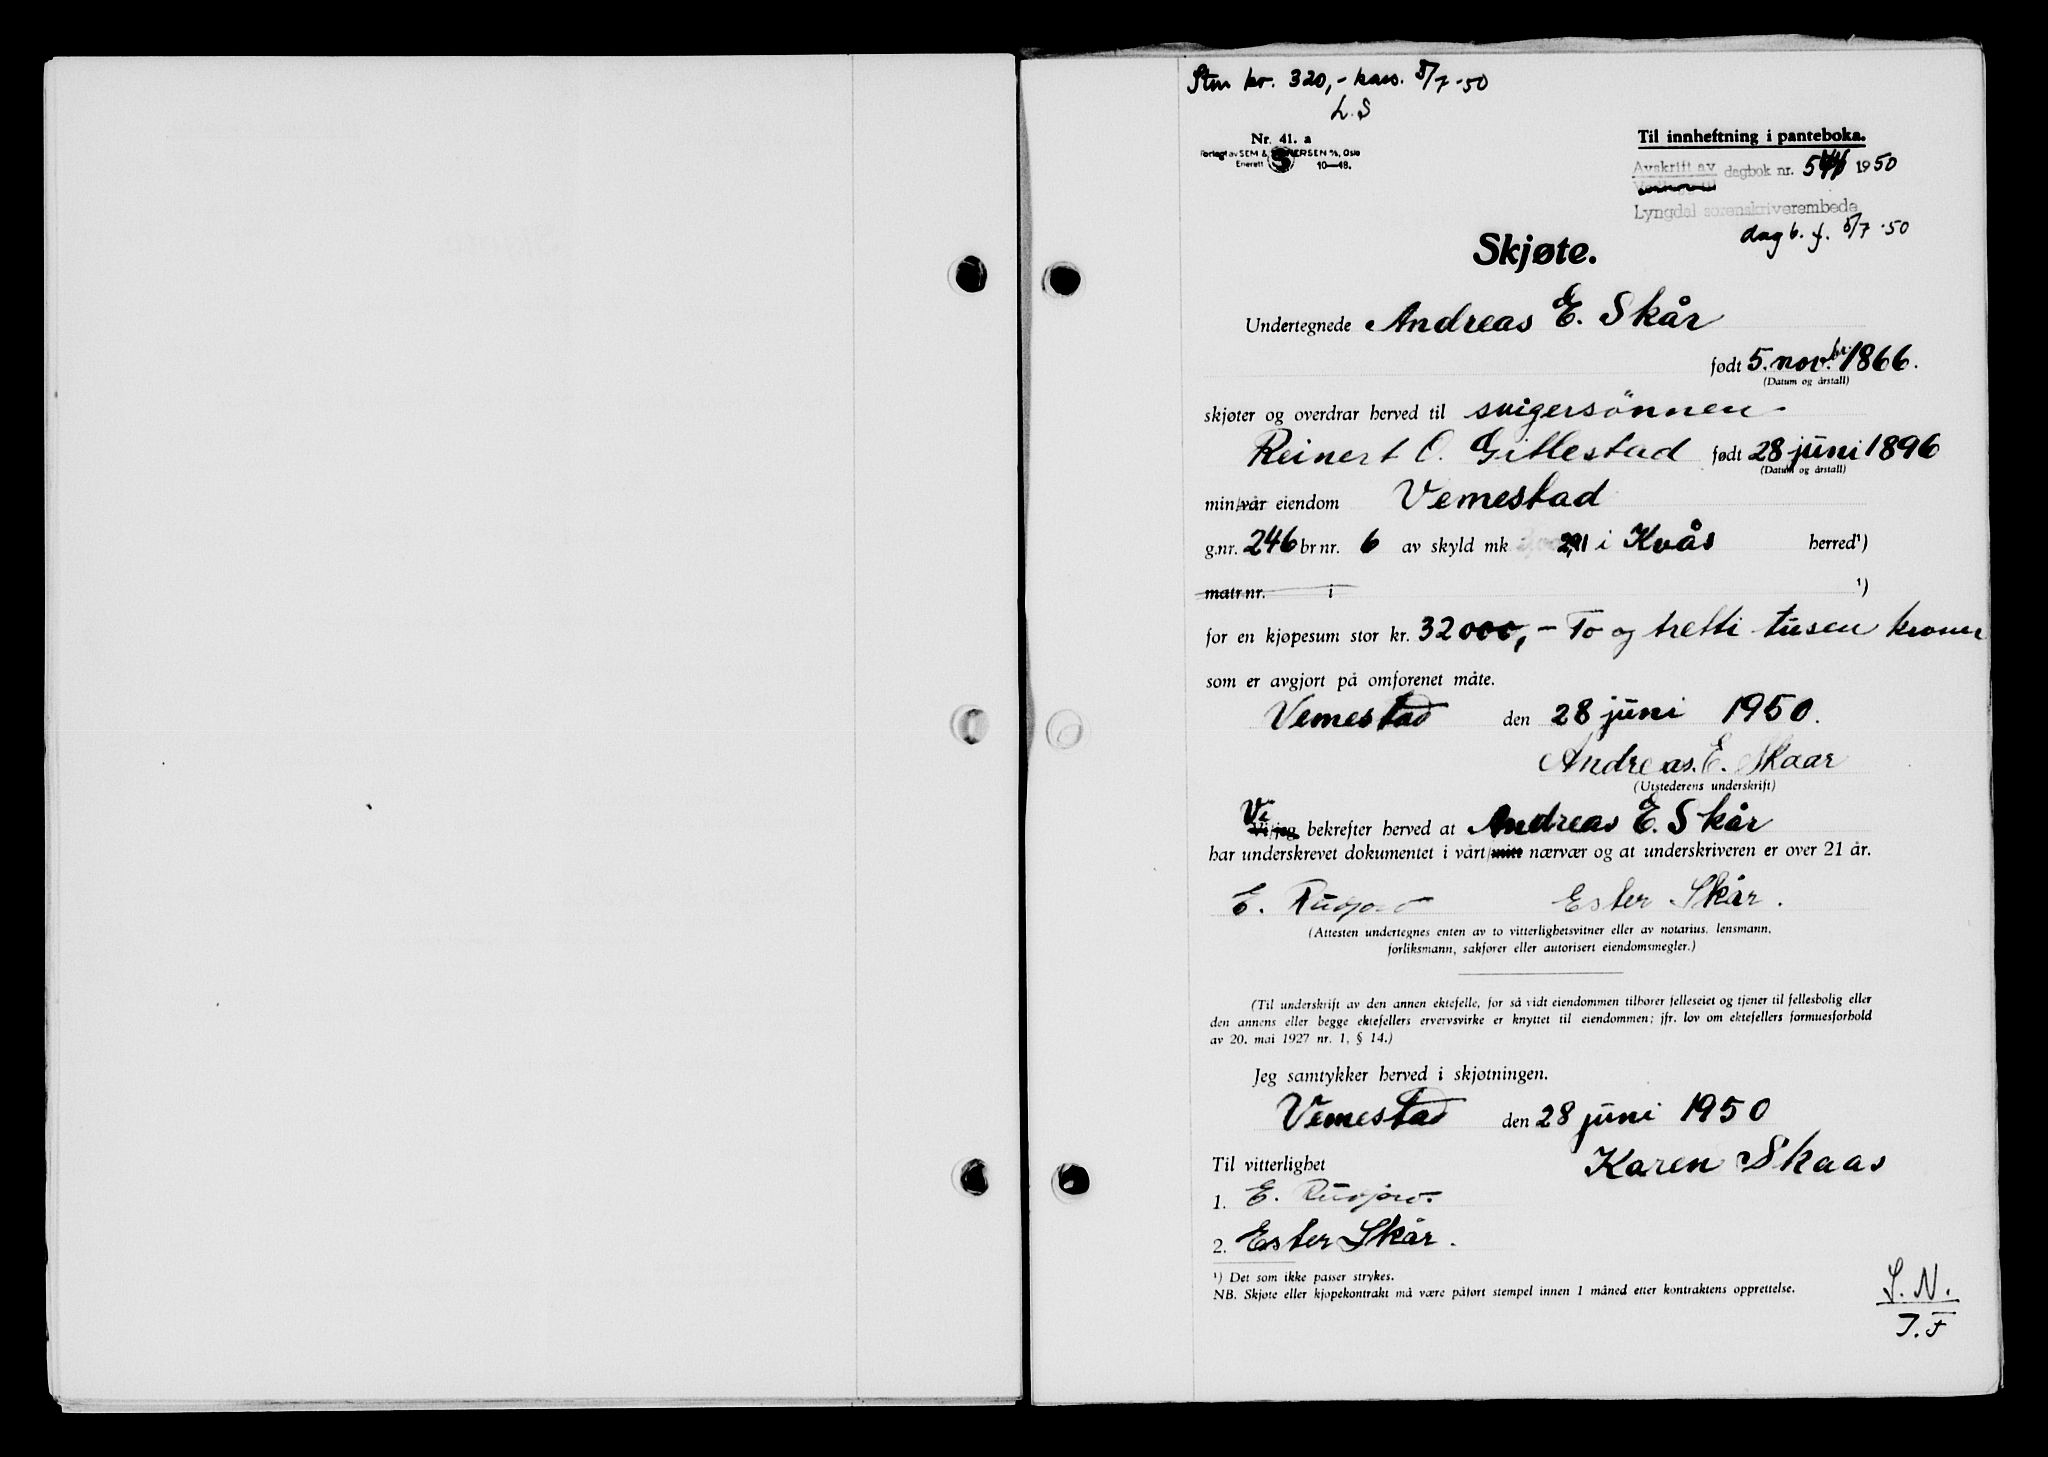 Stm kr. 320,- kass. 5/7-50
L.S
Nr. 41. a
Forlagt av SEM & STENERSEN A/S, Oslo
Enerett 10—48.
Til innheftning i panteboka.
Avskrift av dagbok nr. 544 1950
Lyngdal sorenskriverembede
dagb. f. 5/7-50
Skjøte.
Undertegnede Andreas E. Skår
født 5. novbr. 1866.
(Datum og årstall)
skjøter og overdrar herved til svigersönnen
Reinert O. Gitlestad født 28 juni 1896
(Datum og årstall)
min/vår eiendom Vemestad
g.nr. 246 br nr. 6 av skyld mk 2,91 i Kvås herred¹)
matr nr. i ¹)
for en kjøpesum stor kr. 32000,- To og tretti tusen kroner
som er avgjort på omforenet måte.
Vemestad den 28 juni 1950.
Andreas. E. Skaar
(Utstederens underskrift)
Vi
Vi/jeg bekrefter herved at Andreas E. Skår
har underskrevet dokumentet i vårt/mitt nærvær og at underskriveren er over 21 år.
E. Ester Skår.
(Attesten undertegnes enten av to vitterlighetsvitner eller av notarius, lensmann,
forliksmann, sakfører eller autorisert eiendomsmegler.)
(Til underskrift av den annen ektefelle, for så vidt eiendommen tilhører felleseiet og tjener til fellesbolig eller
den annens eller begge ektefellers ervervsvirke er knyttet til eiendommen; jfr. lov om ektefellers formuesforhold
av 20. mai 1927 nr. 1, § 14.)
Jeg samtykker herved i skjøtningen.
Vemestad den 28 juni 1950
Til vitterlighet Karen Skaar
1. E.
2. Ester Skår.
¹) Det som ikke passer strykes.
NB. Skjøte eller kjøpekontrakt må være påført stempel innen 1 måned etter kontraktens opprettelse.
S. N.
J. F